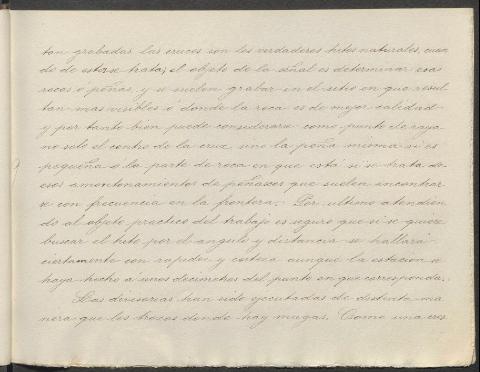 tan grabadas las cruces son los verdaderos hitos naturales, cuan
do de estos se trata; el objeto de la señal es determinar esas
rocas ó peñas, y se suelen grabar en el sitio en que resul
tan mas visibles ó donde la roca es de mejor calidad
y por tanto bien puede considerarse como punto de raya
no solo el centro de la cruz sino la peña misma si es
pequeña o la parte de roca en que está si se trata de
esos amontonamientos de peñascos que suelen encontrar
se con frecuencia en la frontera. Por ultimo atendien
do al objeto practico del trabajo es seguro que si se quiere
buscar el hito por el angulo y distancia se hallará
ciertamente con rapidez y certeza aunque la estacion se
haya hecho á unos decimetros del punto en que corresponda.
Las divisorias han sido ejecutadas de distinta ma
nera que los trozos donde hay mugas. Como una cres